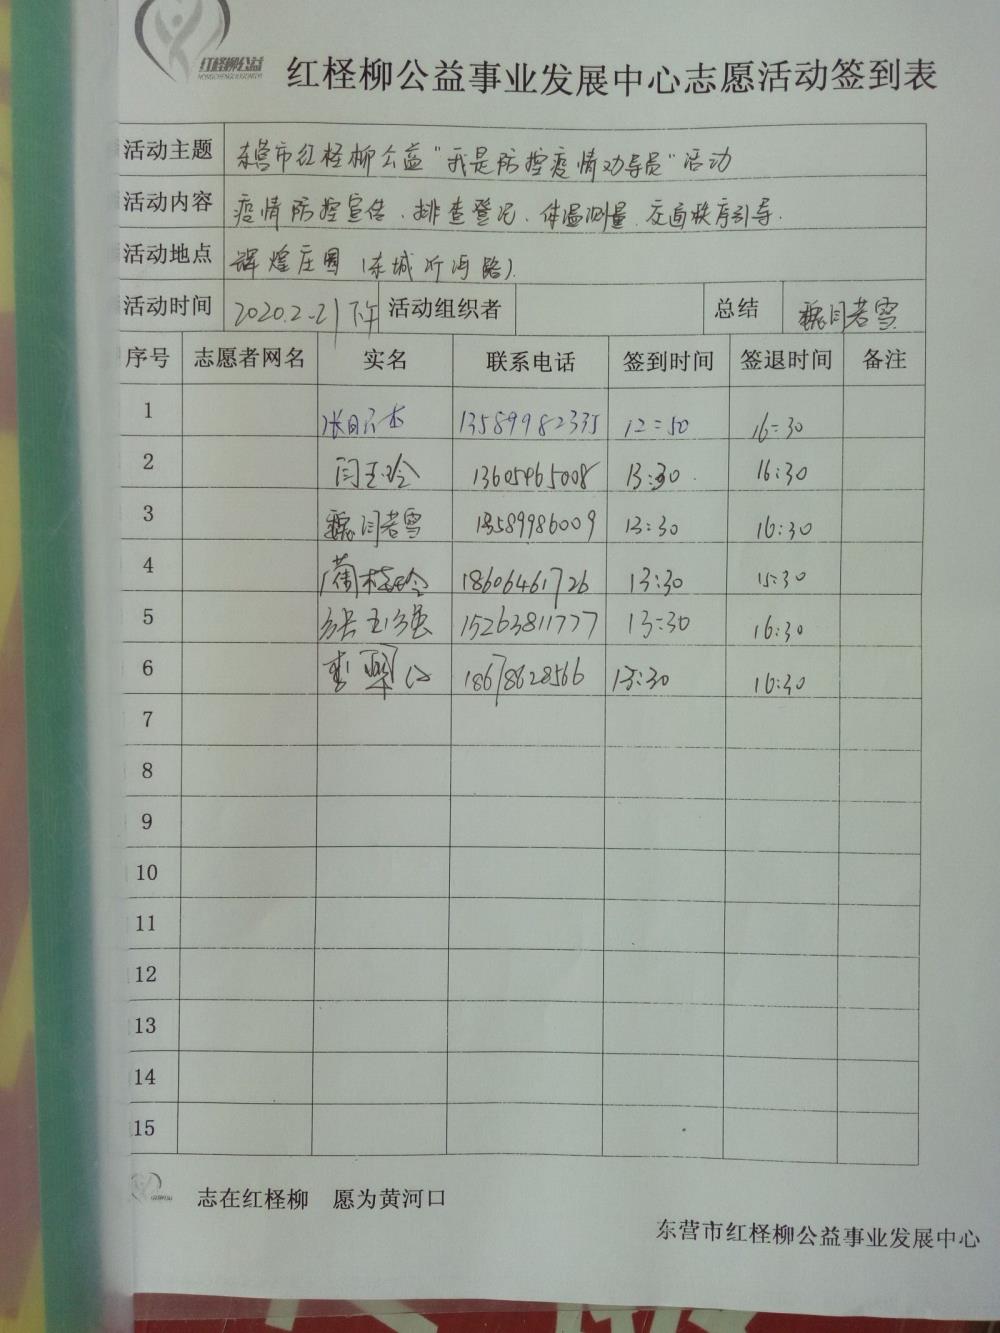 红柽柳公益
红柽柳公益事业发展中心志愿活动签到表
活动主题 东营市红柽柳公益“我是防控疫情劝导员”活动
活动内容 疫情防控宣传、排查登记、体温测量、交通秩序引导.
活动地点 辉煌庄园(东城沂河路).
活动时间 2020.2-21下午 活动组织者 总结 魏闫若雪
序号 志愿者网名 实名 联系电话 签到时间 签退时间 备注
1 13589982335 12:50 16:30
2 闫玉玲 13605465008 13:30 16:30
3 魏闫若雪 13589986009 13:30 16:30
4 18606461726 13:30 15:30
5 张玉强 15263811777 13:30 16:30
6 李 18678628566 13:30 16:30
7
8
9
10
11
12
13
14
15
志在红柽柳 愿为黄河口
东营市红柽柳公益事业发展中心